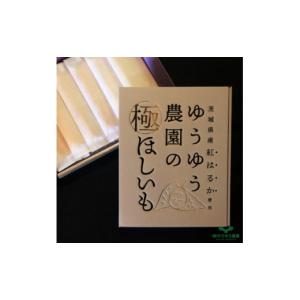 茨城県産紅はるか使用
ゆうゆう
農園の
極ほしいも